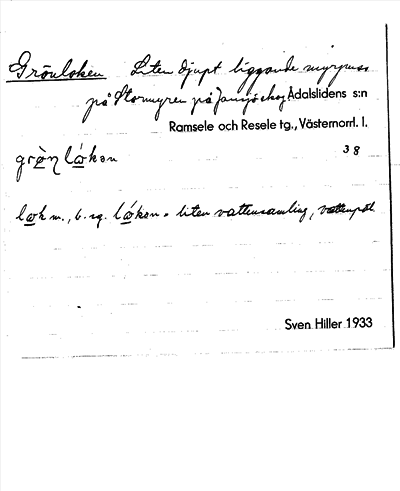 Grönloken Liten djupt liggande myrpuss
på Stormyren på Jansjö skog Ådalslidens s:n
Ramsele och Resele tg., Västernorrl. l.
38
grö̀n lǻkən
låk m., b. sg. lǻken = liten vattensamling, vattenpöl
Sven Hiller 1933